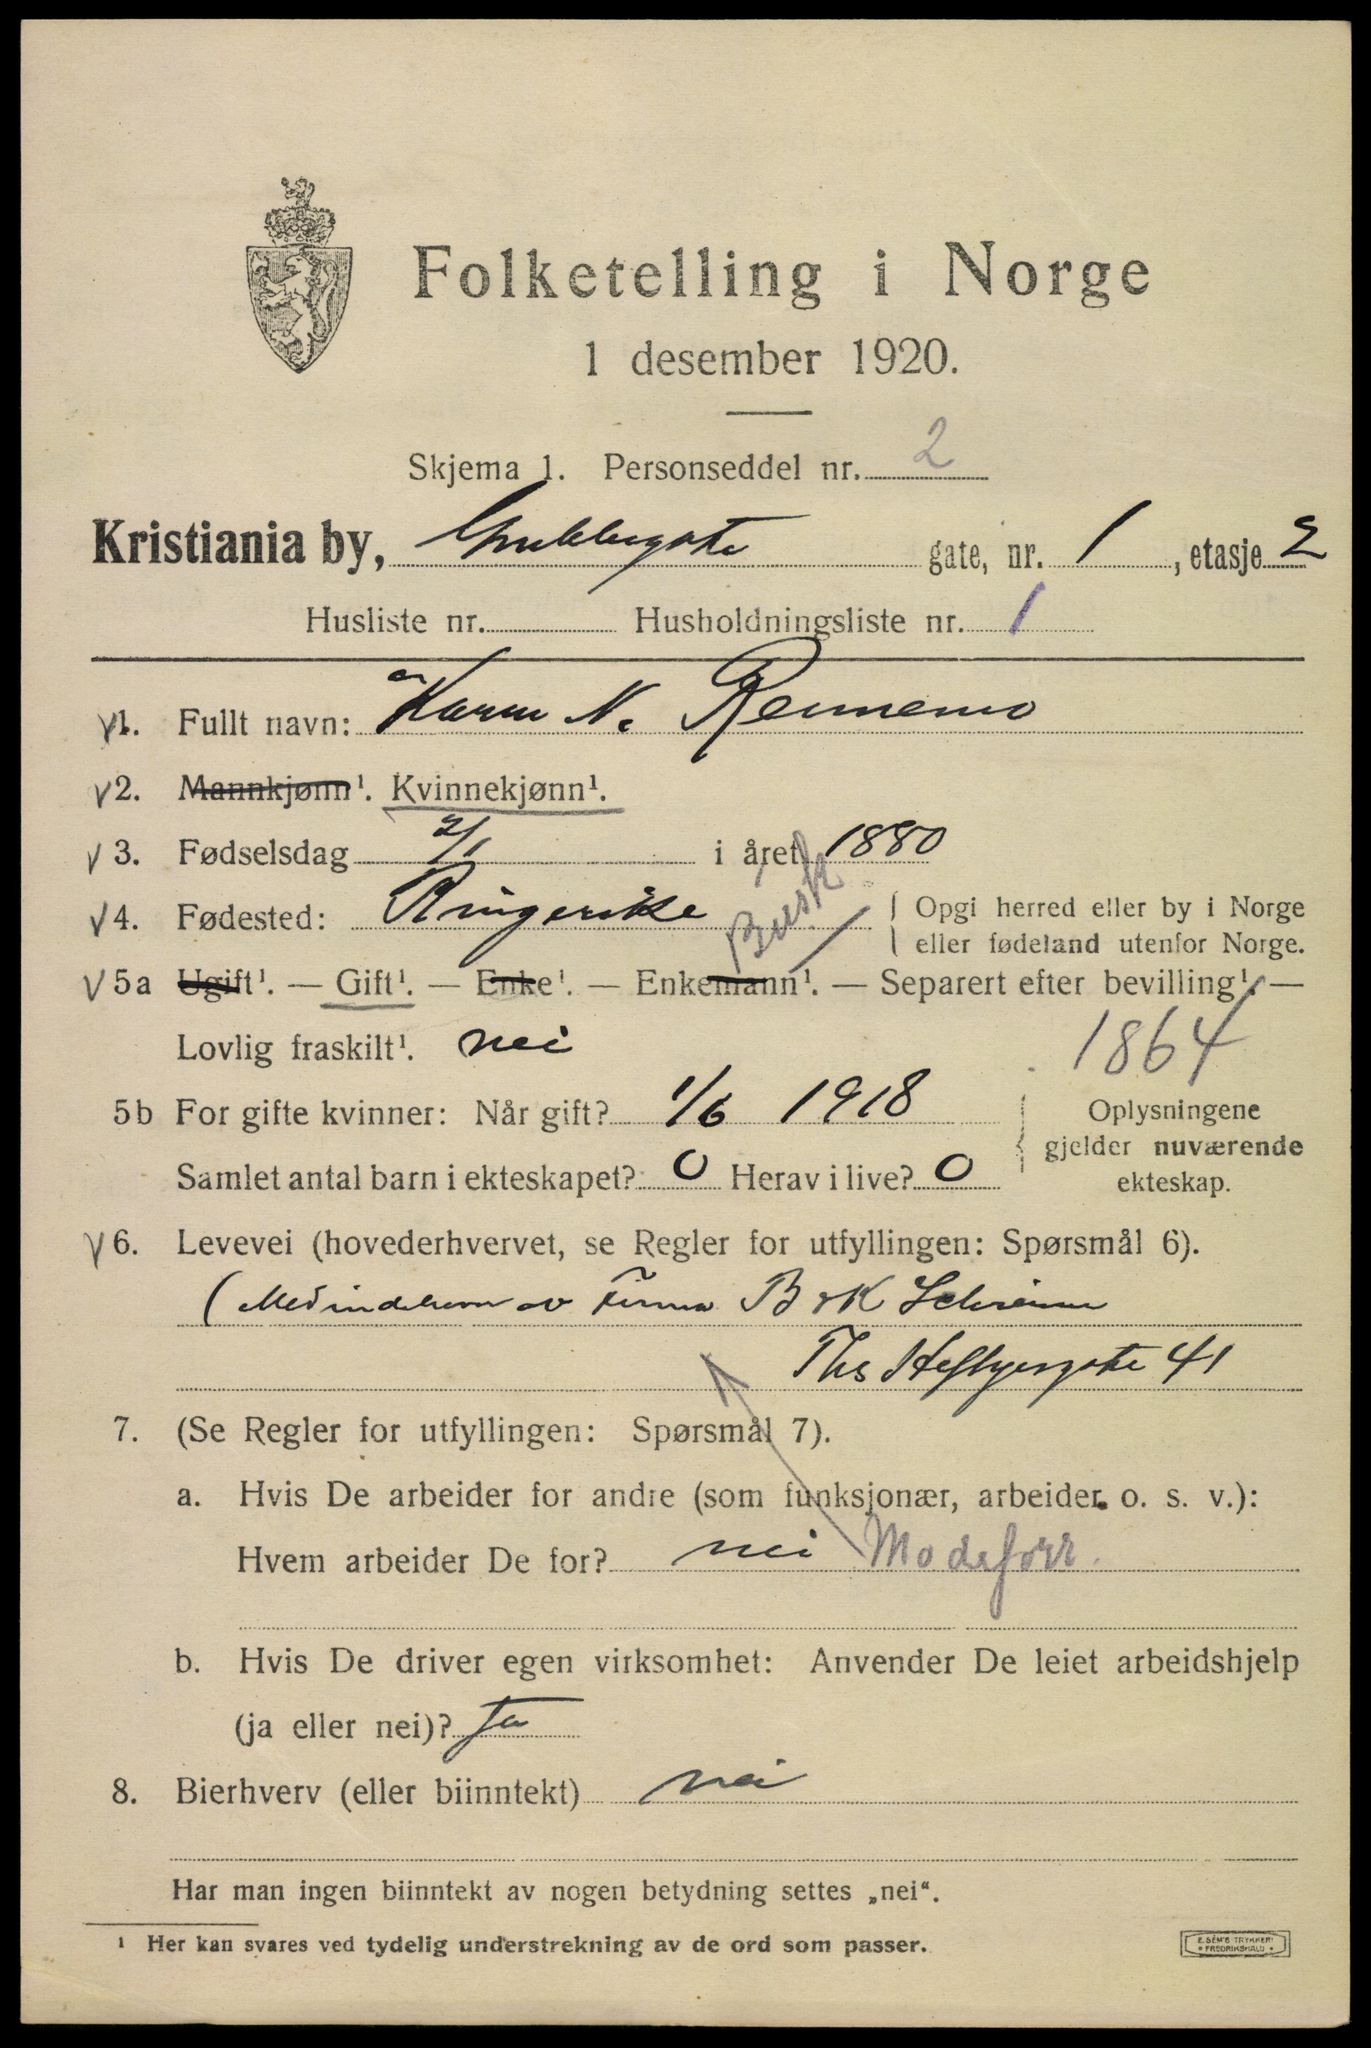 Folketelling i Norge
1 desember 1920.
Skjema 1. Personseddel nr. 2
Kristiania by, Grubbegate gate, nr. 1, etasje 2
Husliste nr. Husholdningsliste nr. 1
v1. Fullt navn: Karen N. Rennemo
v2. Mannkjønn¹. Kvinnekjønn¹.
v3. Fødselsdag 2/1 i året 1880
v4. Fødested: Ringerike Busk { Opgi herred eller by i Norge
eller fødeland utenfor Norge.
v5a Ugift¹. — Gift¹. — Enke¹. — Enkemann¹. — Separert efter bevilling¹. —
Lovlig fraskilt¹. nei 1864
5b For gifte kvinner: Når gift? 1/6 1918 { Oplysningene
gjelder nuværende
Samlet antal barn i ekteskapet? 0 Herav i live? 0 ekteskap.
v6. Levevei (hovederhvervet, se Regler for utfyllingen: Spørsmål 6).
(Medindehaver av Firma B & K Schreiner
Ths Heftyesgate 41
7. (Se Regler for utfyllingen: Spørsmål 7).
a. Hvis De arbeider for andre (som funksjonær, arbeider o. s. v.):
Hvem arbeider De for? nei Modeforr.
b. Hvis De driver egen virksomhet: Anvender De leiet arbeidshjelp
(ja eller nei)? ja
8. Bierhverv (eller biinntekt) nei
Har man ingen biinntekt av nogen betydning settes „nei“.
¹ Her kan svares ved tydelig understrekning av de ord som passer.
E. SEM'S TRYKKERI
FREDRIKSHALD